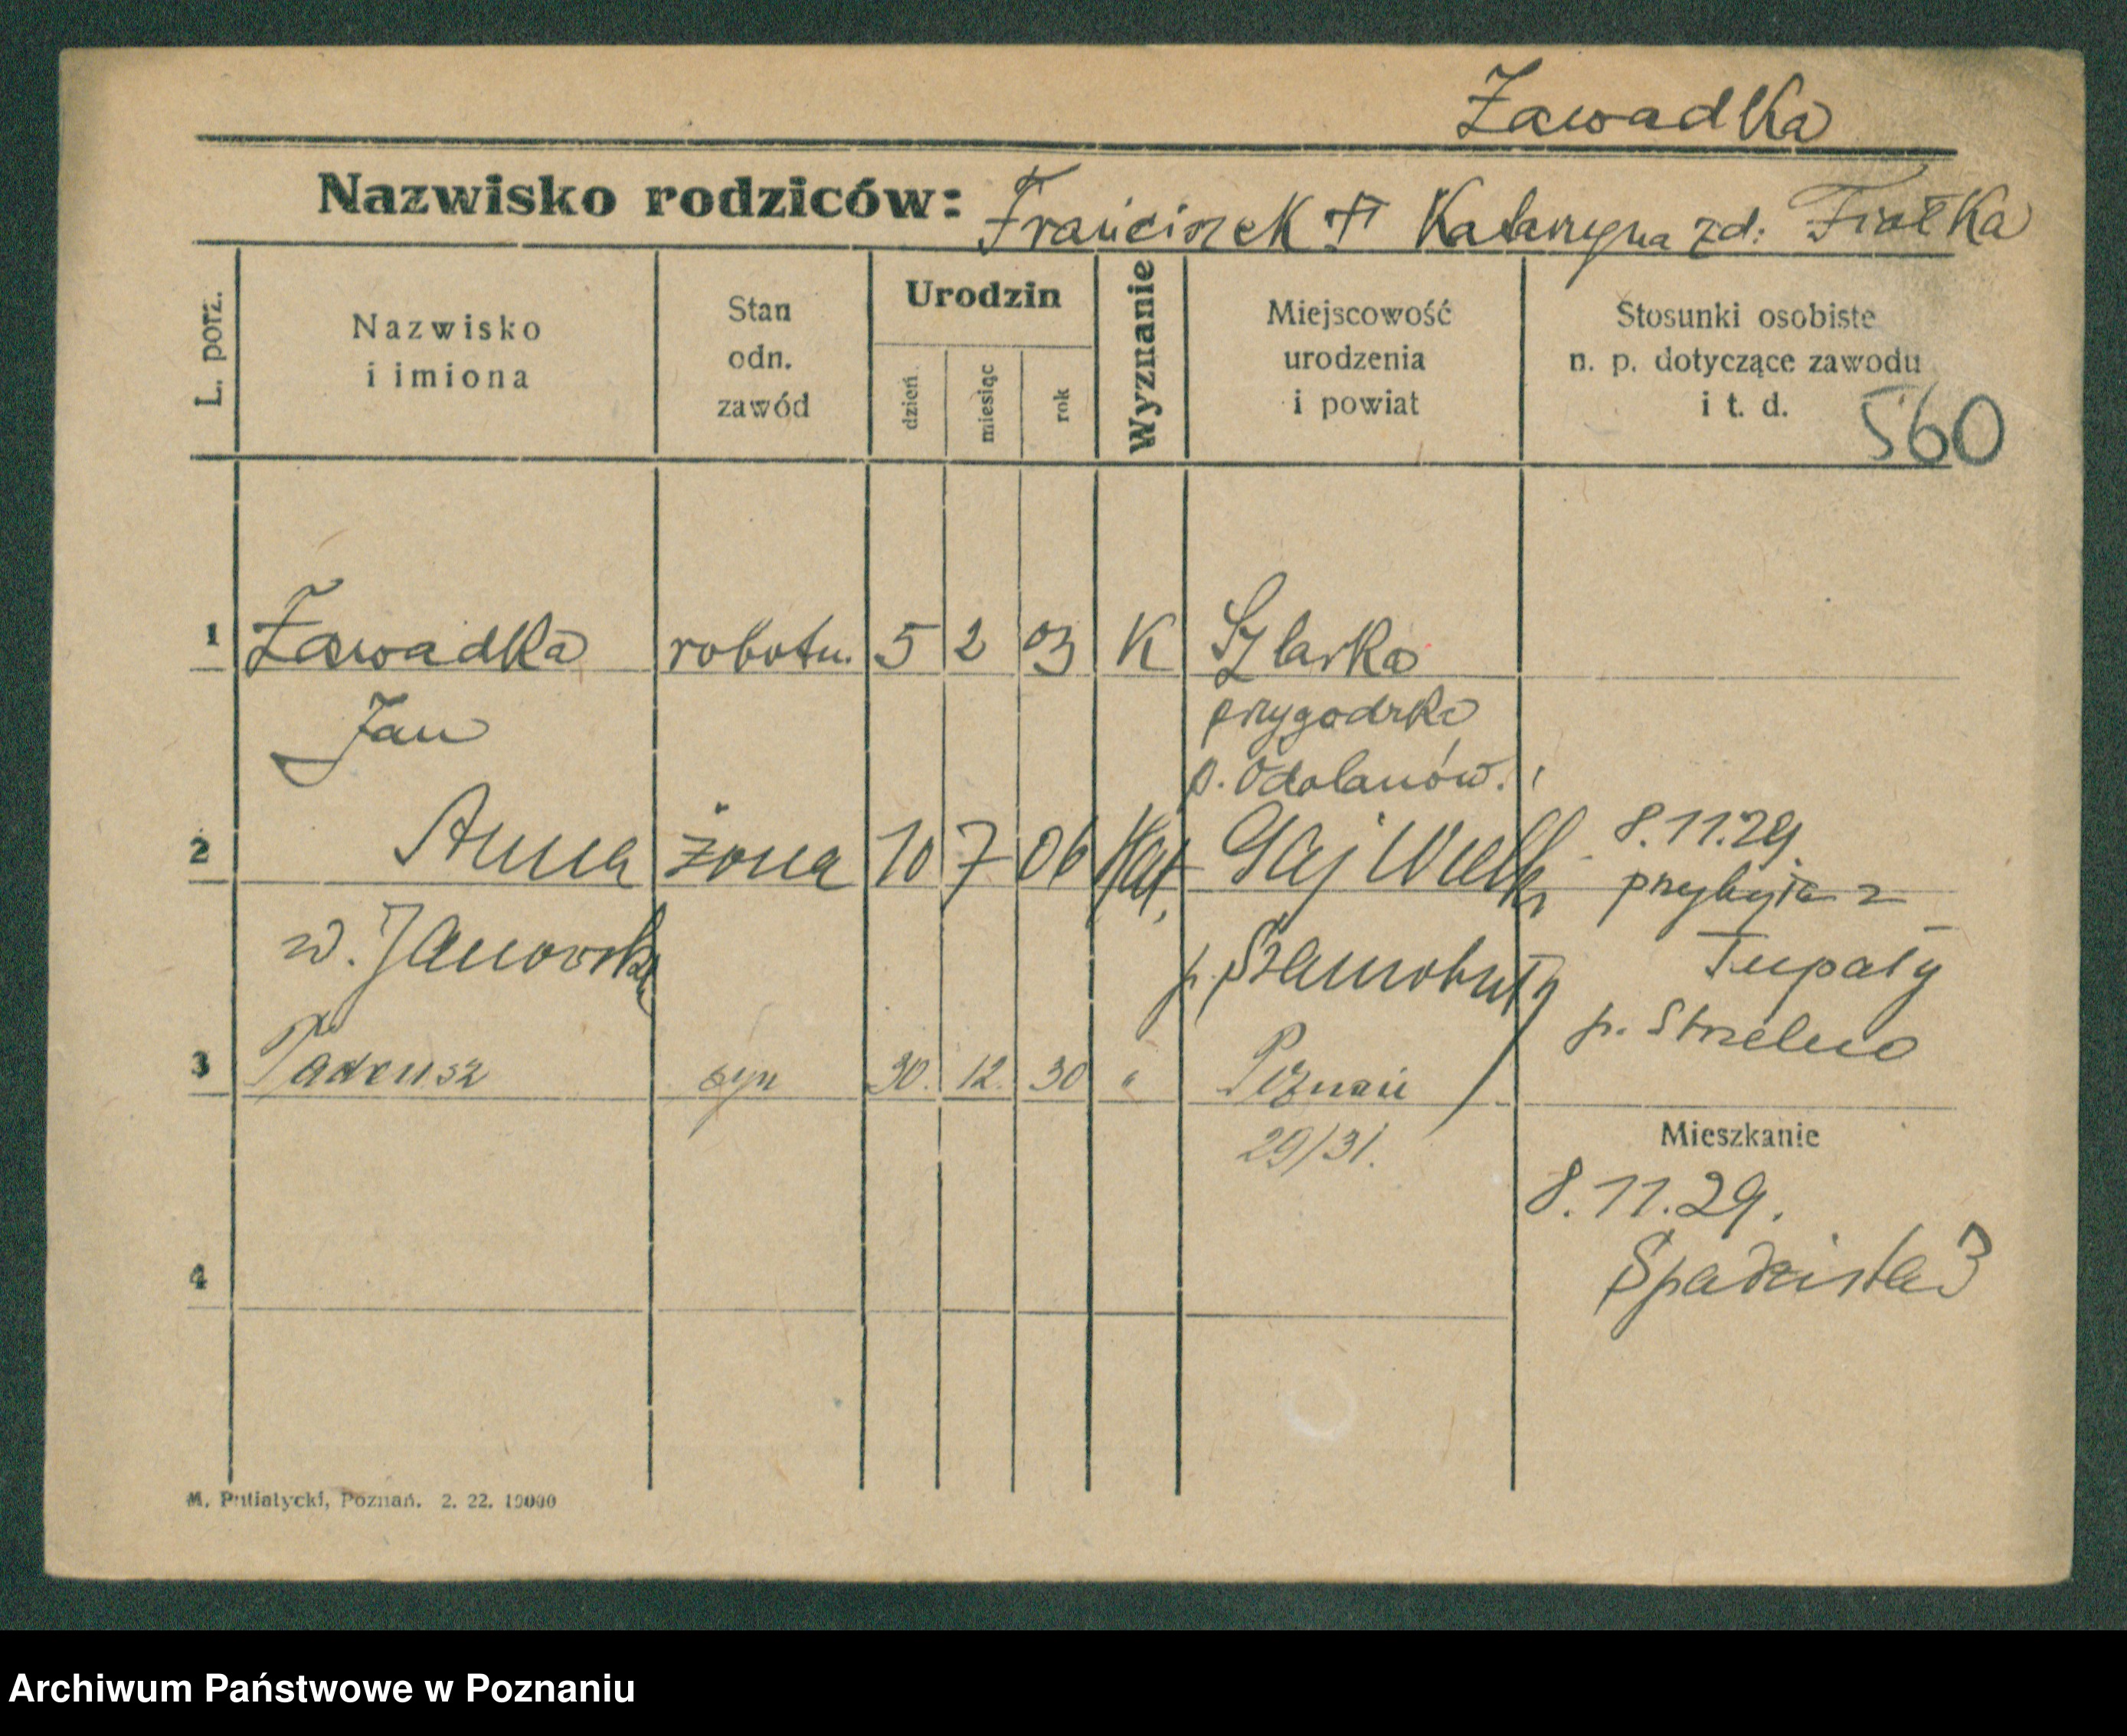 Zawadka
Nazwisko rodziców: Franciszek + Katarzyna zd: Fiołka
L. porz.
Nazwisko
i imiona
Stan
odn.
zawód
Urodzin
dzień
miesiąc
rok
Wyznanie
Miejscowość
urodzenia
i powiat
Stosunki osobiste
n. p. dotyczące zawodu
i t. d.
560
1 Zawadka robotn. 5 2 03 K Szlarka
Jan przygodzka
p. Odolanów.
2 Anna żona 10 7 06 Kat. Gaj Wielki 8.11.29
przybyła z
w. Janowska p. Szamotuły Tupały
p. Strzelno
3 Tadeusz syn 30. 12. 30 " Poznań
29/31.
Mieszkanie
8.11.29.
Spadzista 3
4
M. Putiatycki, Poznań. 2. 22. 10000
Archiwum Państwowe w Poznaniu